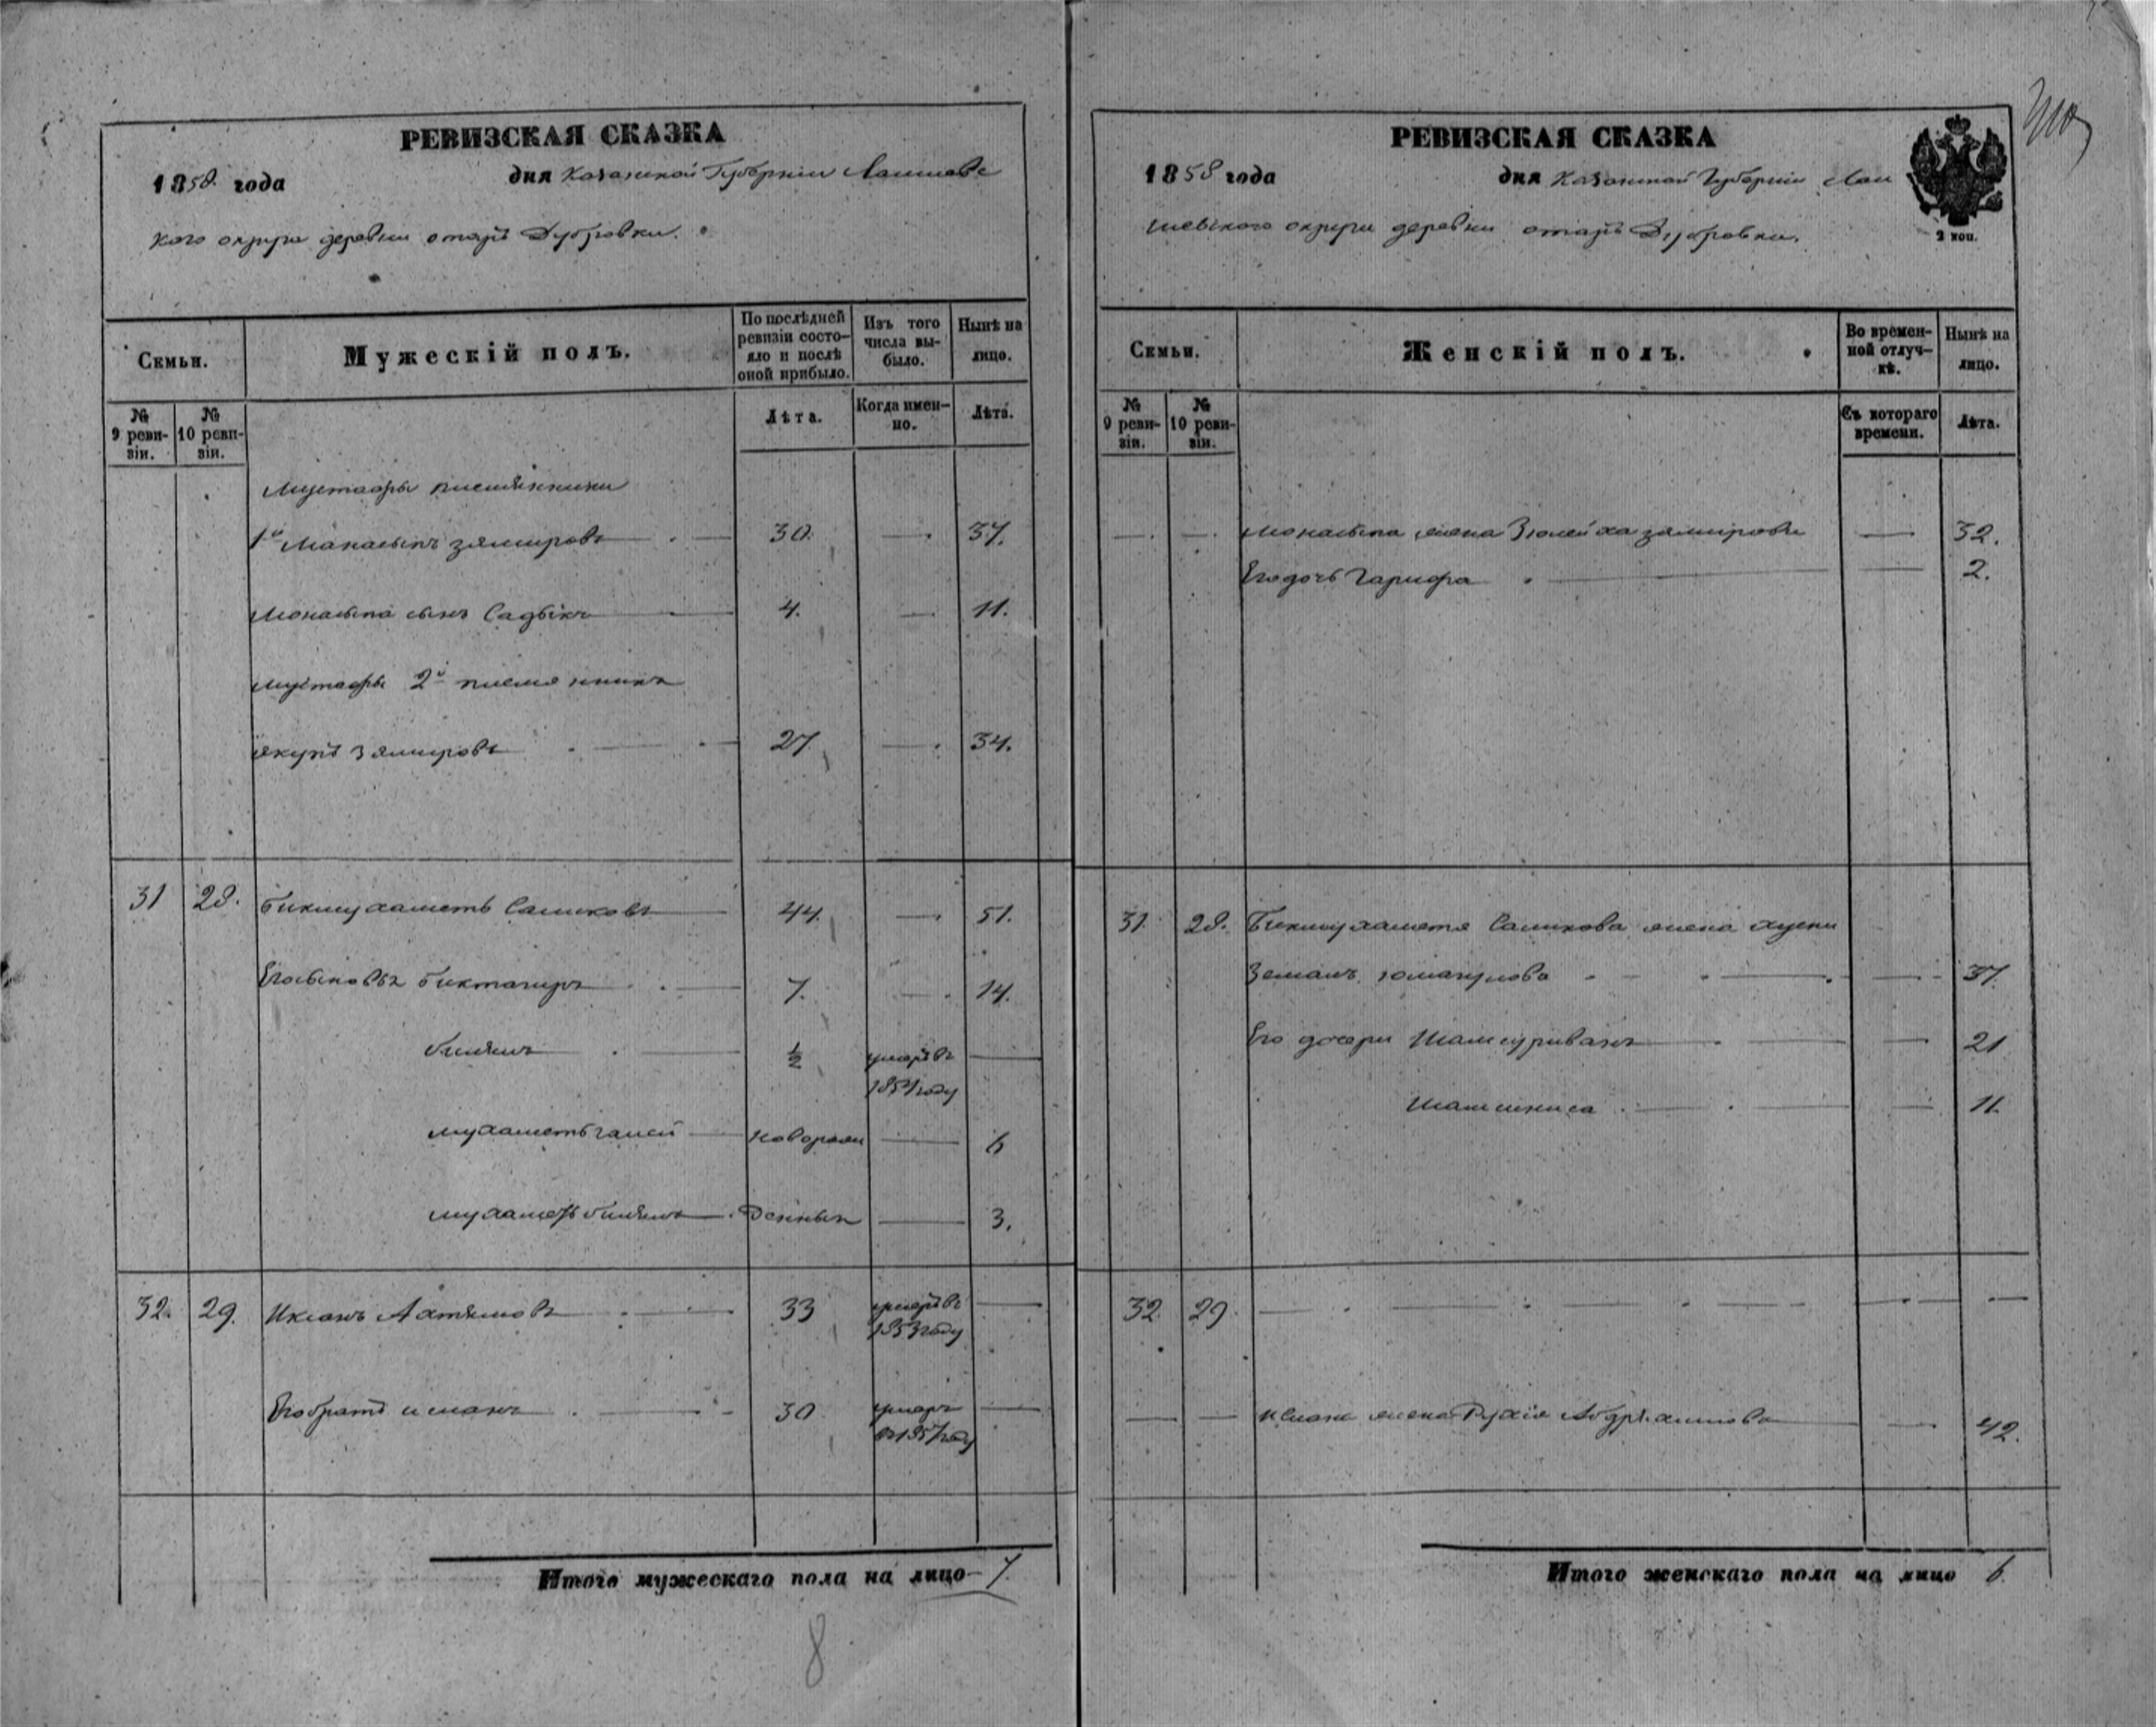 РЕВИЗСКАЯ СКАЗКА
1858 года дня Казанской Губернии Лаишевс
кого округа деревни отаръ Дубровки.
Семьи.
Мужескій полъ.
По послѣдней ревизіи состояло и послѣ оной прибыло.
Изъ того числа выбыло.
Нынѣ на лицо.
№ 9 ревизіи.
№ 10 ревизіи.
Лѣта.
Когда именно.
Лѣта.
Мустафы племянники
1й Манасыпъ Зямировъ 30. — 37.
Монасыпа сынъ Садыкъ 4. — 11.
Мустафы 2й племянникъ
Якупъ Зямировъ 27. — 34.
31 28. Бикмухаметь Салиховъ 44. — 51.
Его сыновья Биктагиръ 7. — 14.
Билялъ ½ умеръ въ —
1854 году
Мухаметьгалей новорож — 6
Мухаметьбилялъ денных — 3.
32. 29. Иксанъ Ахтямовъ 33 умеръ въ —
1853 году
Его братъ Исланъ 30 умеръ —
въ 1857 году
Итого мужескаго пола на лицо 7.
8
РЕВИЗСКАЯ СКАЗКА
1858 года дня Казанской Губерніи Лаи
шевского округа деревни отаръ Дубровки.
2 коп.
Семьи.
Женскій полъ.
Во временной отлучкѣ.
Нынѣ на лицо.
№ 9 ревизіи.
№ 10 ревизіи.
Съ котораго времени.
Лѣта.
— — Монасыпа жена Зюлейха Зямирова — 32.
Его дочь Гарифа — 2.
31. 28. Бикмухаметя Салихова жена Хусни
Земалъ Юмагулова — 37.
Его дочери Шамсуриваль — 21
Шамсиниса — 11.
32. 29. — — —
— — жена Рухія Абдряшитова — 42.
Итого женскаго пола на лицо 6.